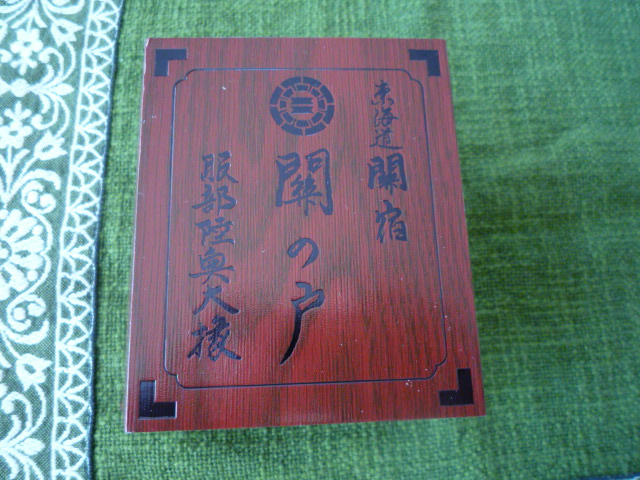 東海道 関宿
関の戸
服部陸奥大掾